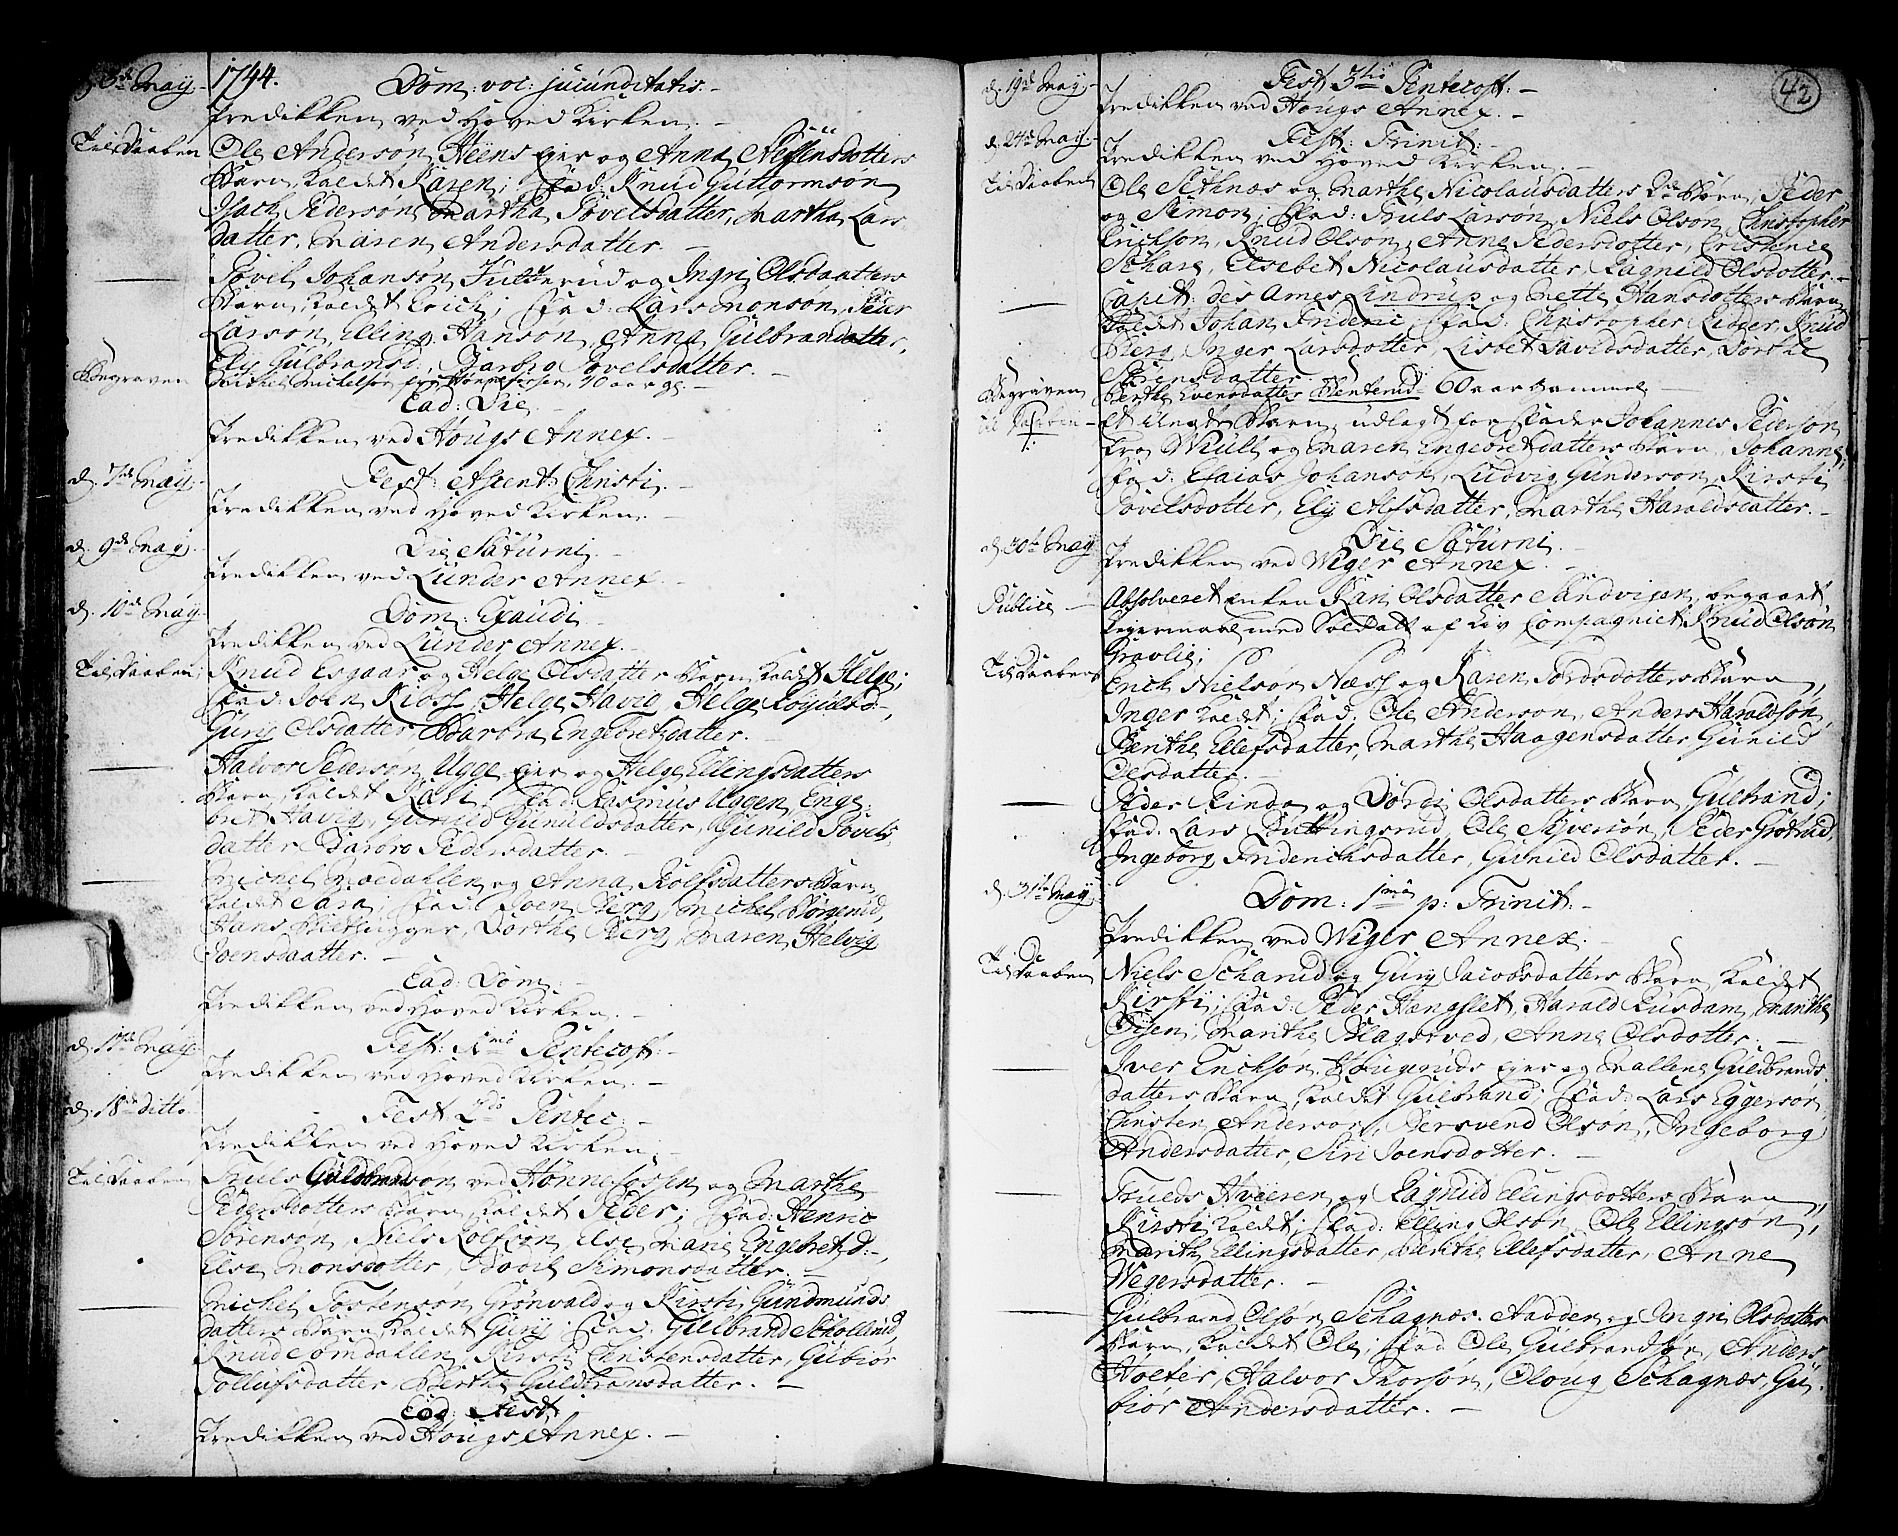 d. 3de May. 1744. Dom: voc: jucunditatis. –
Prædikken ved Hoved Kirken. –
Til Daaben Ole Andersøn Heens eier og Anna
Barn, kaldet Karen; fad: Knud Guttormsøn
Isach Pedersøn, Martha Povelsdatter, Martha Lars-
datter, Maren Andersdatter. –
Povel Johansøn og Ingri Olsdaatters
Barn, kaldet Erich; fad: Lars Monson, Peder
Larson, Elling Hanson, Anna Gulbrandatter,
Elij Gulbransd., Barbro Povelsdatter. –
Begraven Mickelsøn fra Hønnefossen, 70 aar gl. –
Ead: Die. –
Prædikken ved Hougs Annex. –
d. 7de May. Fest: Ascent: Christi. –
Prædikken ved Hoved Kirken. –
d. 9de May. Die Saturni. –
Prædikken ved Lunder Annex. –
d. 10de May Dom: Exaudi. –
Prædikken ved Lunder Annex. –
Til Daaben; Knud Esgaar og Helge Olsdatters Barn, kaldet Helge;
fad: John Kioss, Helge Havig, Helge
Gurij Olsdatter, Barbra Engebretsdatter. –
Halvor Pedersøn Ugge eier og Helge Ellingsdatters
Barn, kaldet Kari, fad: Rasmus Uggen, Enge-
bret Havig, Gunild Gunuldsdatter, Gunild Povels-
datter, Barbro Pedersdatter. –
Michel Moedahlen og Anna Rolfsdatters Barn
kaldet Sara; fad: Joen Berg, Michel
Hans, Dorthe Berg, Maren Helvig
Joensdaatter. –
Ead: Dom: –
Prædikken ved Hoved Kirken. –
d. 17de May. Fest: 1me Pentecost: –
Prædikken ved Hoved Kirken. –
d. 18de ditto Fest 2do Pentec: –
Prædikken ved Hoved Kirken. –
Til Daaben Truls Guldbrandson ved Hønnefossen og Marthe
Pedersdotters Barn, kaldet Peder; fad: Henric
Sørensøn, Niels Rolfsøn, Else Marie Engebretsd: –,
Else Monsdotter, Bodil Simonsdatter. –
Michel Tostensøn Grønvald og Kirsti Gundmunds-
datters Barn, kaldet Gurij; fad: Gulbrand Schollerud,
Knud Somdahlen, Kirsti Christensdatter, Gubiør
Tollufsdatter, Berthe Guldbransdatter. –
Ead: Fest:
Prædikken ved Hougs Annex. –
42
d. 19de May. Fest 3tio Pentecost: –
Prædikken ved Hougs Annex. –
d. 24de May. Fest: Trinit: –
Prædikken ved Hoved Kirken. –
Til Daaben Ole Sethnæs og Marthe Nicolausdatters 2de Børn, Peder
og Simon; fad: Truls Larsøn, Niels Olson, Christopher
Erickson, Knud Olson, Anne Pedersdotter, Cristense
Schare, Elsebet Nicolausdatter, Ragnild Olsdotter. –
Capit: des Armes Lindrup og Mette Hansdotters Barn
kaldet Johan Frideric, fad: Christopher Ridder, Knud
Berg, Inger Larsdotter, Lisbet Davidsdatter, Dorthe
Sørensdatter. –
Begraven Berthe Evensdatter Benterud 60 aar Gammel –
til Daaben Et uægte Barn, udlagt for fader Johannes Pedersøn
fra Wiull og Maren Engebretsdatters Barn, Johanne;
fad: Esaias Johansøn, Ludvig Gunderson, Kirsti
Povelsdotter, Elij Alfsdatter, Marthe Haraldsdatter. –
d. 30te May Die Saturni. –
Prædikken ved Wiger Annex. –
Publice – Absolveret enken Kari Olsdatter Sandvigen, begaaet
Leiermaal med Soldatt af Liv Compagniet Knud Olsøn
Gravlie;
Til Daaben Erick Nielsøn Næss og Karen Tordsdotters Barn,
Inger kaldet; fad: Ole Anderson, Anders Haraldsøn,
Berthe Ellefsdatter, Marthe Haagensdatter, Gunild
Olsdatter. –
Peder Rinda og Dordi Olsdatters Barn Gulbrand;
fad: Lars Buttingsrud, Ole Sijversøn, Peder Grotrud,
Ingeborg Friderichsdatter, Gunild Olsdatter. –
d. 31te May. Dom: 1ma p: Trinit: –
Prædikken ved Wiger Annex. –
Til Daaben Niels Scharud og Gurij Jacobsdatters Barn, kaldet
Kirsti; fad: Peder Hengslet, Harald Rusdam, Marthe
Oijen, Marithe Blagstved, Anne Olsdotter. –
Iver Erichsøn Hougeruds eier og Mallene Guldbrands-
datters Barn, kaldet Gulbrand; fad: Lars Eggerson,
Christen Anderson, Bersvend Olsøn, Ingeborg
Andersdatter, Siri Joensdotter. –
Trueds Aveeren og Ragnild Ellingsdotters Barn,
Kirsti kaldet; fad: Elling Olsøn, Ole Ellingsøn,
Marith Ellingsdatter, Berthe Ellefsdatter, Anne
Wegersdatter. –
Gulbrand Olsøn Schagnæs Hadden og Ingri Olsdatters
Barn, kaldet Ole; fad: Ole Gulbrandsøn, Anders
Holter, Halvor Thorsøn, Oloug Schagnæs, Gu-
biør Andersdatter. –